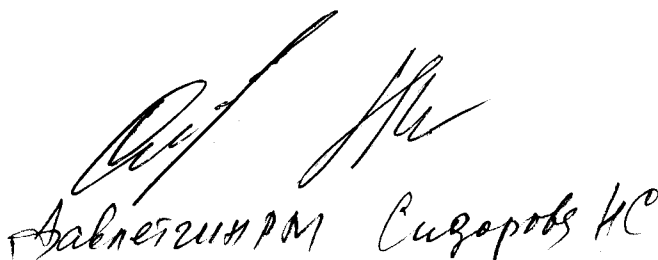 Давлетгин РМ Сидорова НС